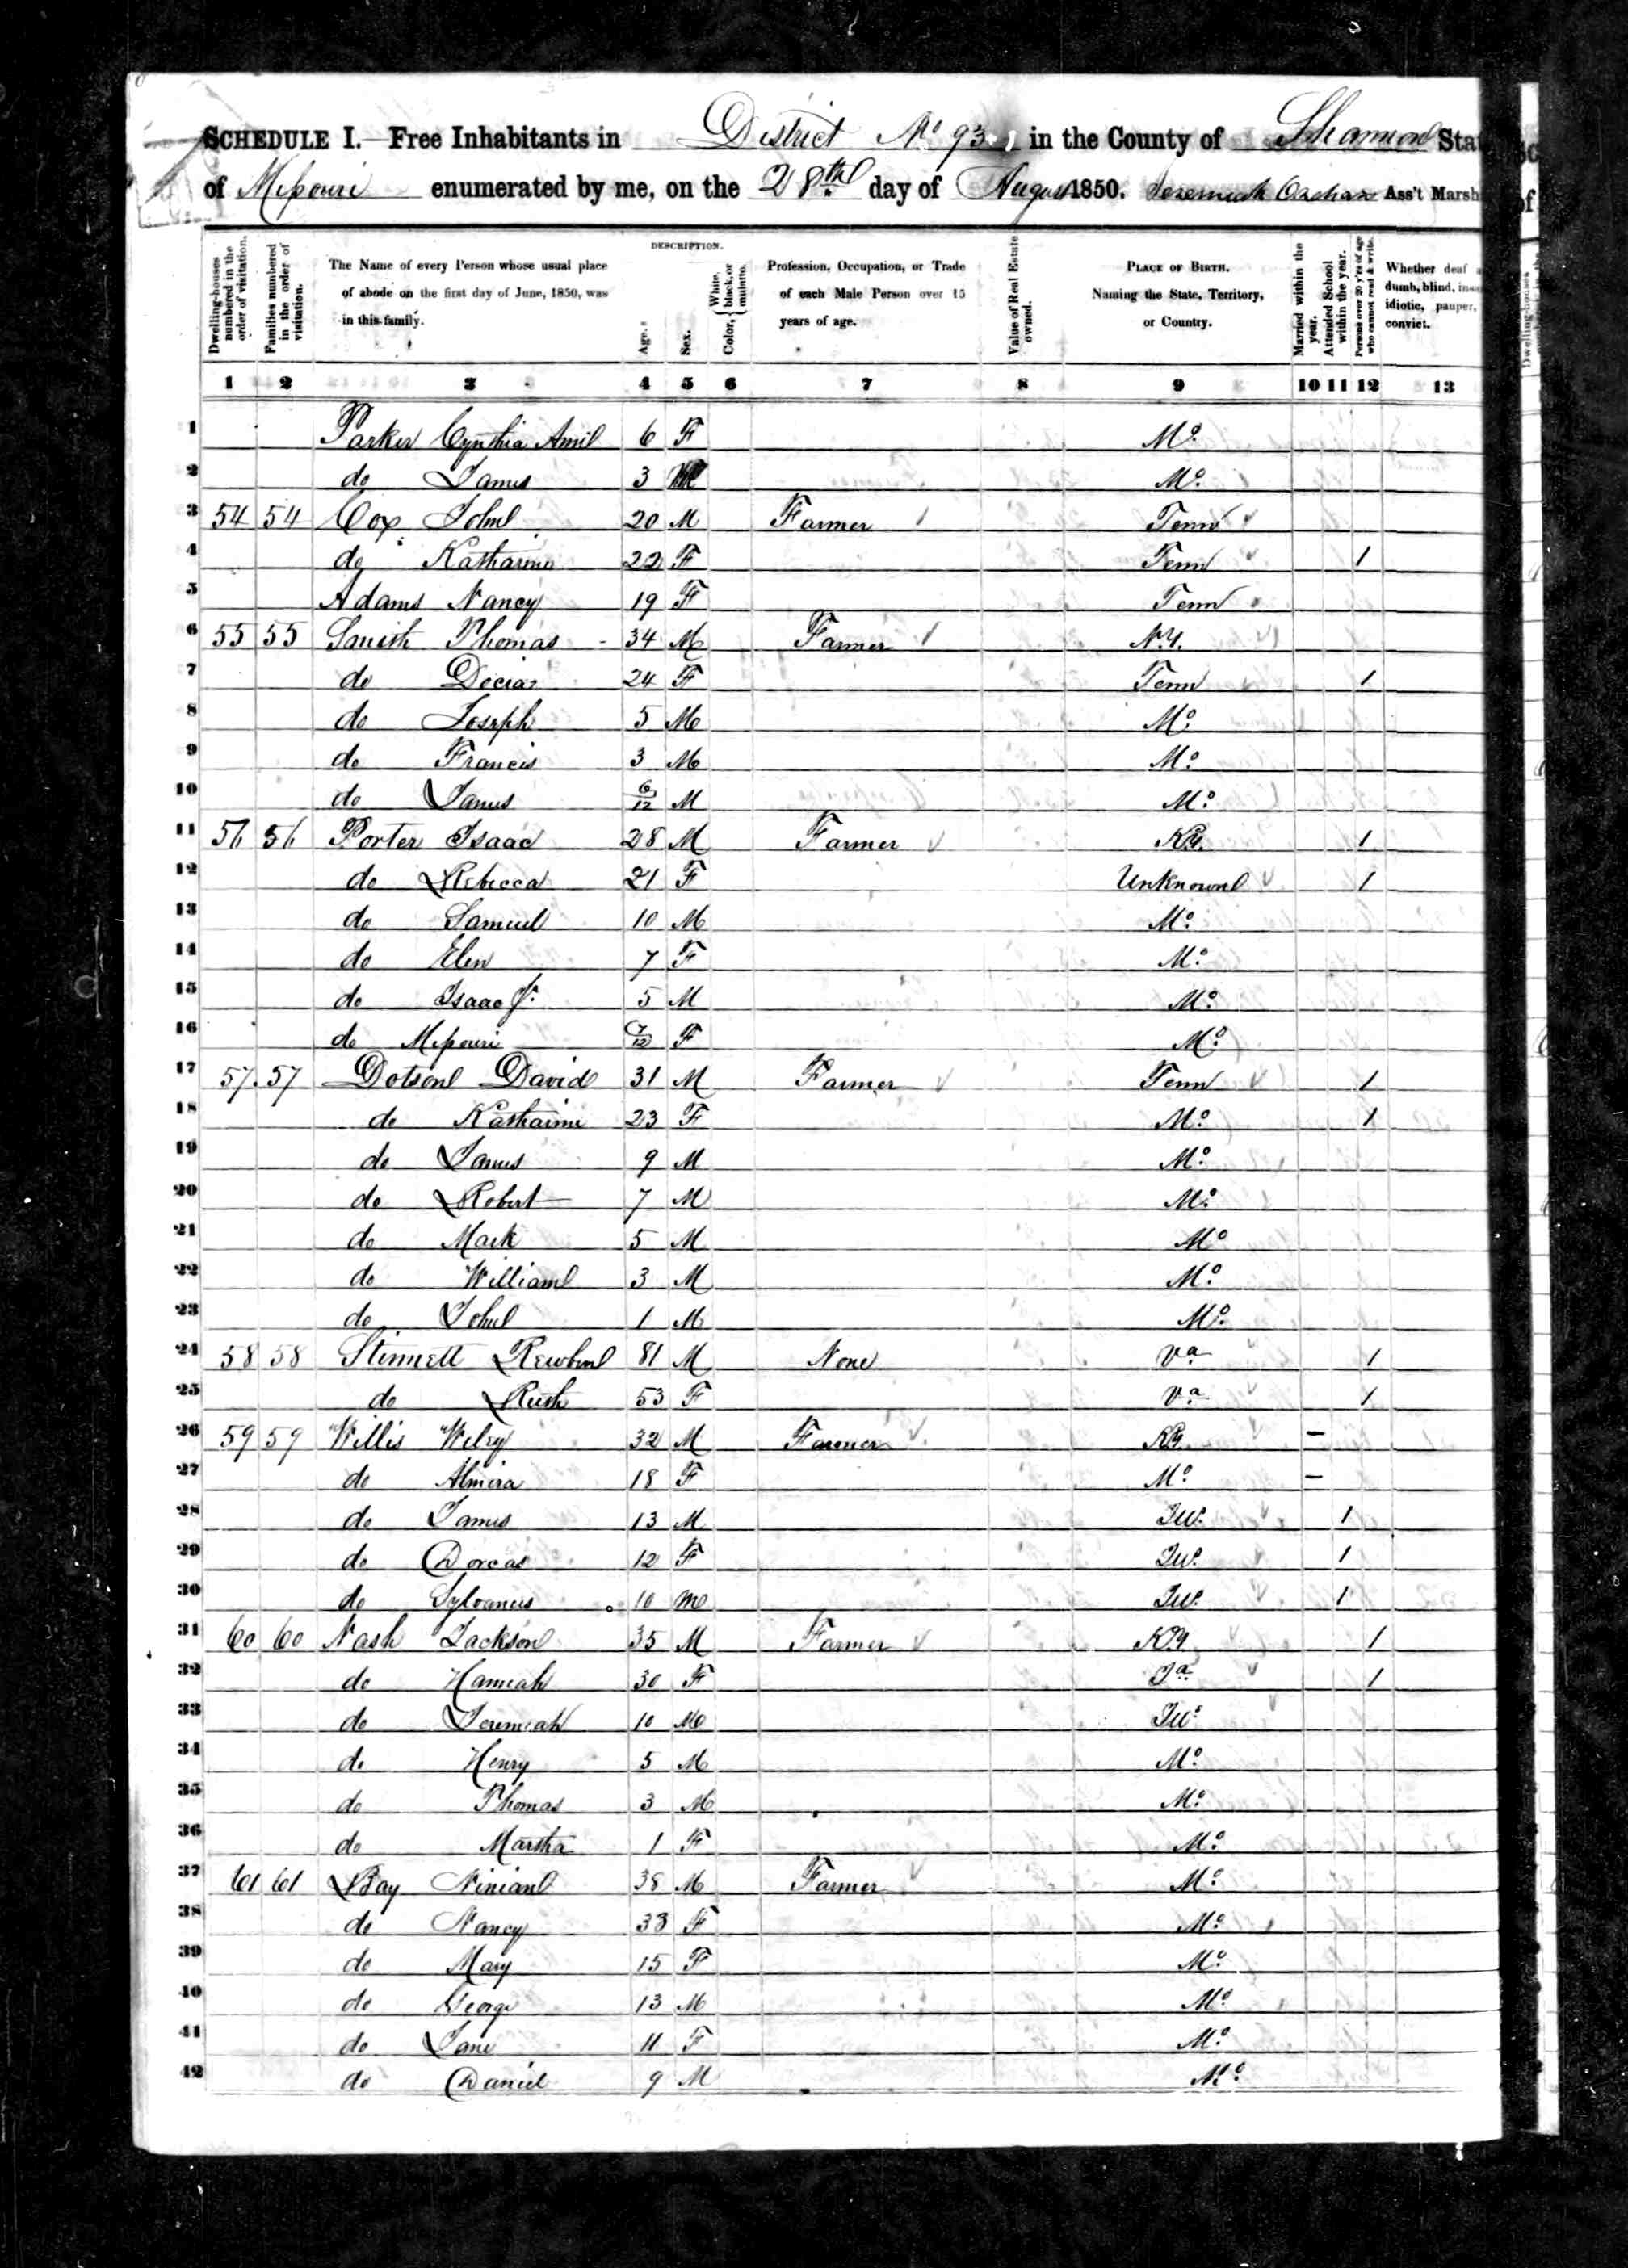 SCHEDULE I.—Free Inhabitants in District No 93 in the County of Shannon Stat
of Missouri enumerated by me, on the 28th day of August 1850. Jeremiah Orchard Ass't Marsh
Dwelling-houses numbered in the order of visitation.
Families numbered in the order of visitation.
The Name of every Person whose usual place of abode on the first day of June, 1850, was in this family.
DESCRIPTION.
Age.
Sex.
Color, { White, black, or mulatto.
Profession, Occupation, or Trade of each Male Person over 15 years of age.
Value of Real Estate owned.
PLACE OF BIRTH.
Naming the State, Territory, or Country.
Married within the year.
Attended School within the year.
Persons over 20 y'rs of age who cannot read & write.
Whether deaf dumb, blind, insa idiotic, pauper, convict.
1 2 3 4 5 6 7 8 9 10 11 12 13
1 Parker Cynthia 6 F Mo
2 do James 3 M Mo
3 54 54 Cox John 20 M Farmer Tenn
4 do Katharine 22 F Tenn 1
5 Adams Nancy 19 F Tenn
6 55 55 Thomas 34 M Farmer N.Y.
7 do 24 F Tenn 1
8 do Joseph 5 M Mo
9 do Francis 3 M Mo
10 do James 6/12 M Mo
11 56 56 Porter Isaac 28 M Farmer Ky. 1
12 do Rebecca 21 F Unknown 1
13 do Samuel 10 M Mo
14 do Elen 7 F Mo
15 do Isaac Jr. 5 M Mo
16 do Missouri 7/12 F Mo
17 57 57 Dotson David 31 M Farmer Tenn 1
18 do Katharine 23 F Mo 1
19 do James 9 M Mo
20 do Robert 7 M Mo
21 do Mark 5 M Mo
22 do William 3 M Mo
23 do John 1 M Mo
24 58 58 Stinnett Rewben 81 M None Va 1
25 do Ruth 53 F Va 1
26 59 59 Willis Wiley 32 M Farmer Ky. –
27 do Almira 18 F Mo –
28 do James 13 M Ill. 1
29 do Dorcas 12 F Ill. 1
30 do Sylvanus 10 M Ill. 1
31 60 60 Nash Jackson 35 M Farmer Ky 1
32 do Hannah 30 F 1
33 do Jeremiah 10 M Ill.
34 do Henry 5 M Mo
35 do Thomas 3 M Mo
36 do Martha 1 F Mo
37 61 61 Bay Ninian 38 M Farmer Mo
38 do Nancy 33 F Mo
39 do Mary 15 F Mo
40 do George 13 M Mo
41 do Jane 11 F Mo
42 do Daniel 9 M Mo